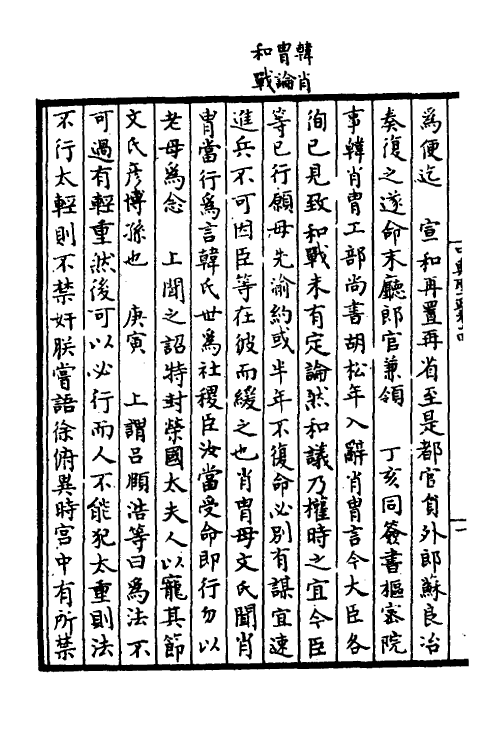 韓肖
胄論
和戰
爲便迄　宣和再置再省至是都官員外郎蘇良冶
奏復之遂命末廳郎官兼領　丁亥同簽書樞密院
事韓肖胄工部尚書胡松年入辭肖胄言今大臣各
徇已見致和戰未有定論然和議乃權時之宜今臣
等已行願毋先渝約或半年不復命必别有謀宜速
進兵不可因臣等在彼而緩之也肖胄母文氏聞肖
胄當行爲言韓氏世爲社稷臣汝當受命即行勿以
老母爲念　上聞之詔特封榮國太夫人以寵其節
文氏彦博孫也　庚寅　上謂吕頤浩等曰爲法不
可過有輕重然後可以必行而人不能犯太重則法
不行太輕則不禁奸朕嘗語徐俯異時宫中有所禁